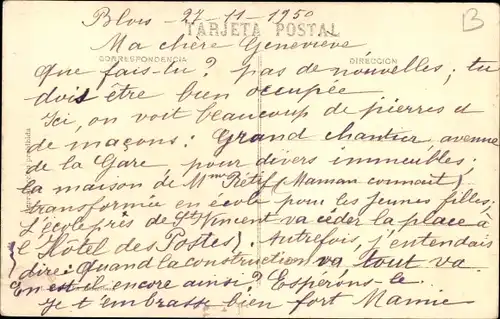 Blois - 27-11-1950
B
TARJETA POSTAL
Ma chère Geneviève
CORRESPONDENCIA
DIRECCION
que fais-tu? pas de nouvelles; tu
dois être bien occupée
Ici, on voit beaucoup de pierres et
de maçons: Grand chantier, avenue
de la Gare pour divers immeubles;
la maison de Mme Rétif (Maman connaît)
transformée en école pour les jeunes filles;
(L'école près de St Vincent va céder la place à
l'Hôtel des Postes). Autrefois, j'entendais
dire: Quand la construction va tout va.
En est-il encore ainsi? Espérons-le
Je t'embrasse bien fort Mamie